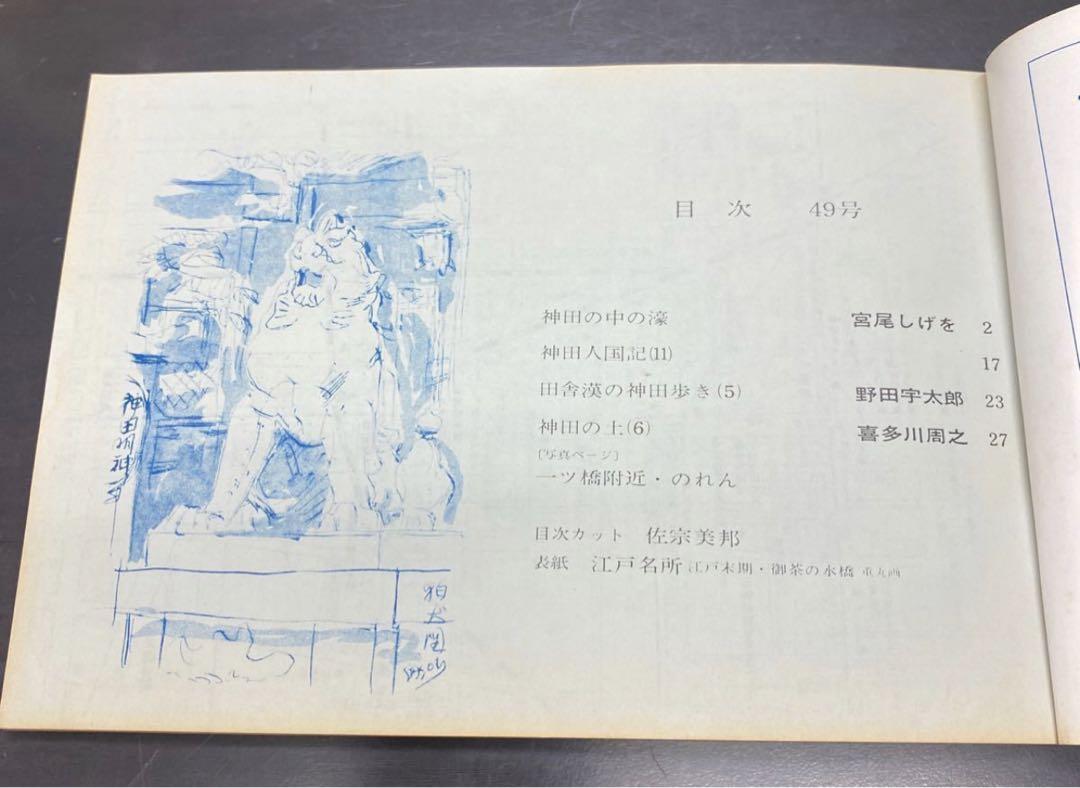 目次 49号
神田の中の濠 宮尾しげを 2
神田人国記(11) 17
田舎漢の神田歩き(5) 野田宇太郎 23
神田の土(6) 喜多川周之 27
〔写真ページ〕
一ツ橋附近・のれん
目次カット 佐宗美邦
表紙 江戸名所 江戸末期・御茶の水橋 重丸画
神田明神
狛犬